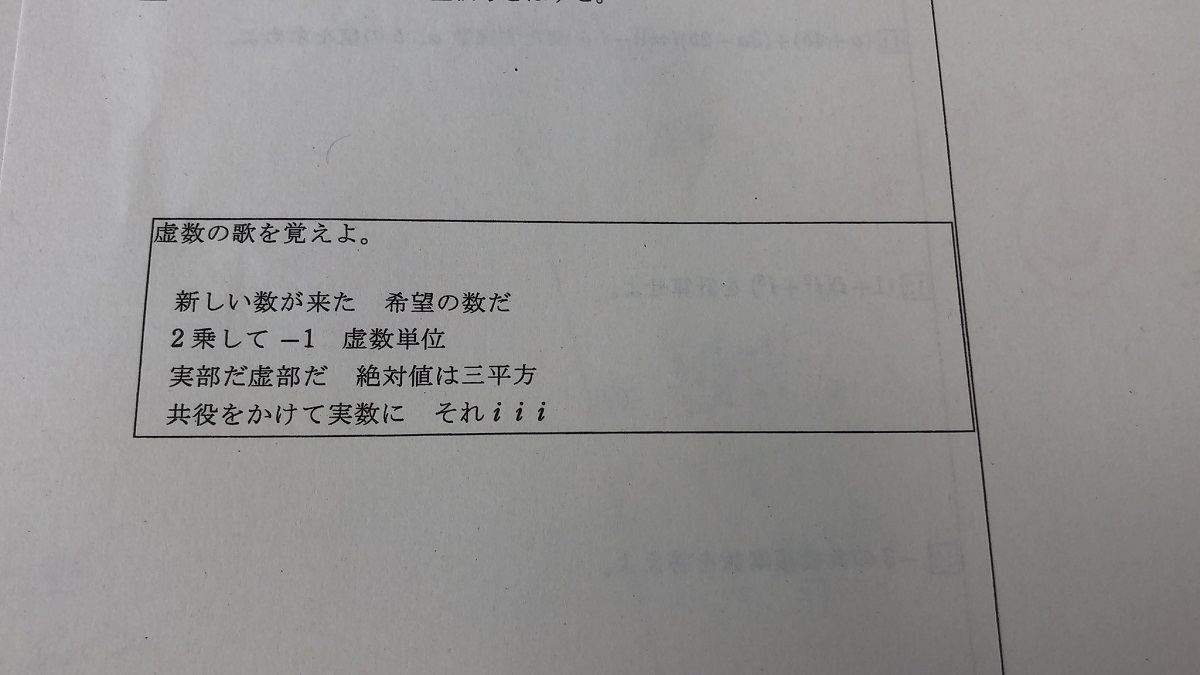 虚数の歌を覚えよ。
新しい数が来た　希望の数だ
2乗して −1　虚数単位
実部だ虚部だ　絶対値は三平方
共役をかけて実数に　それ i i i